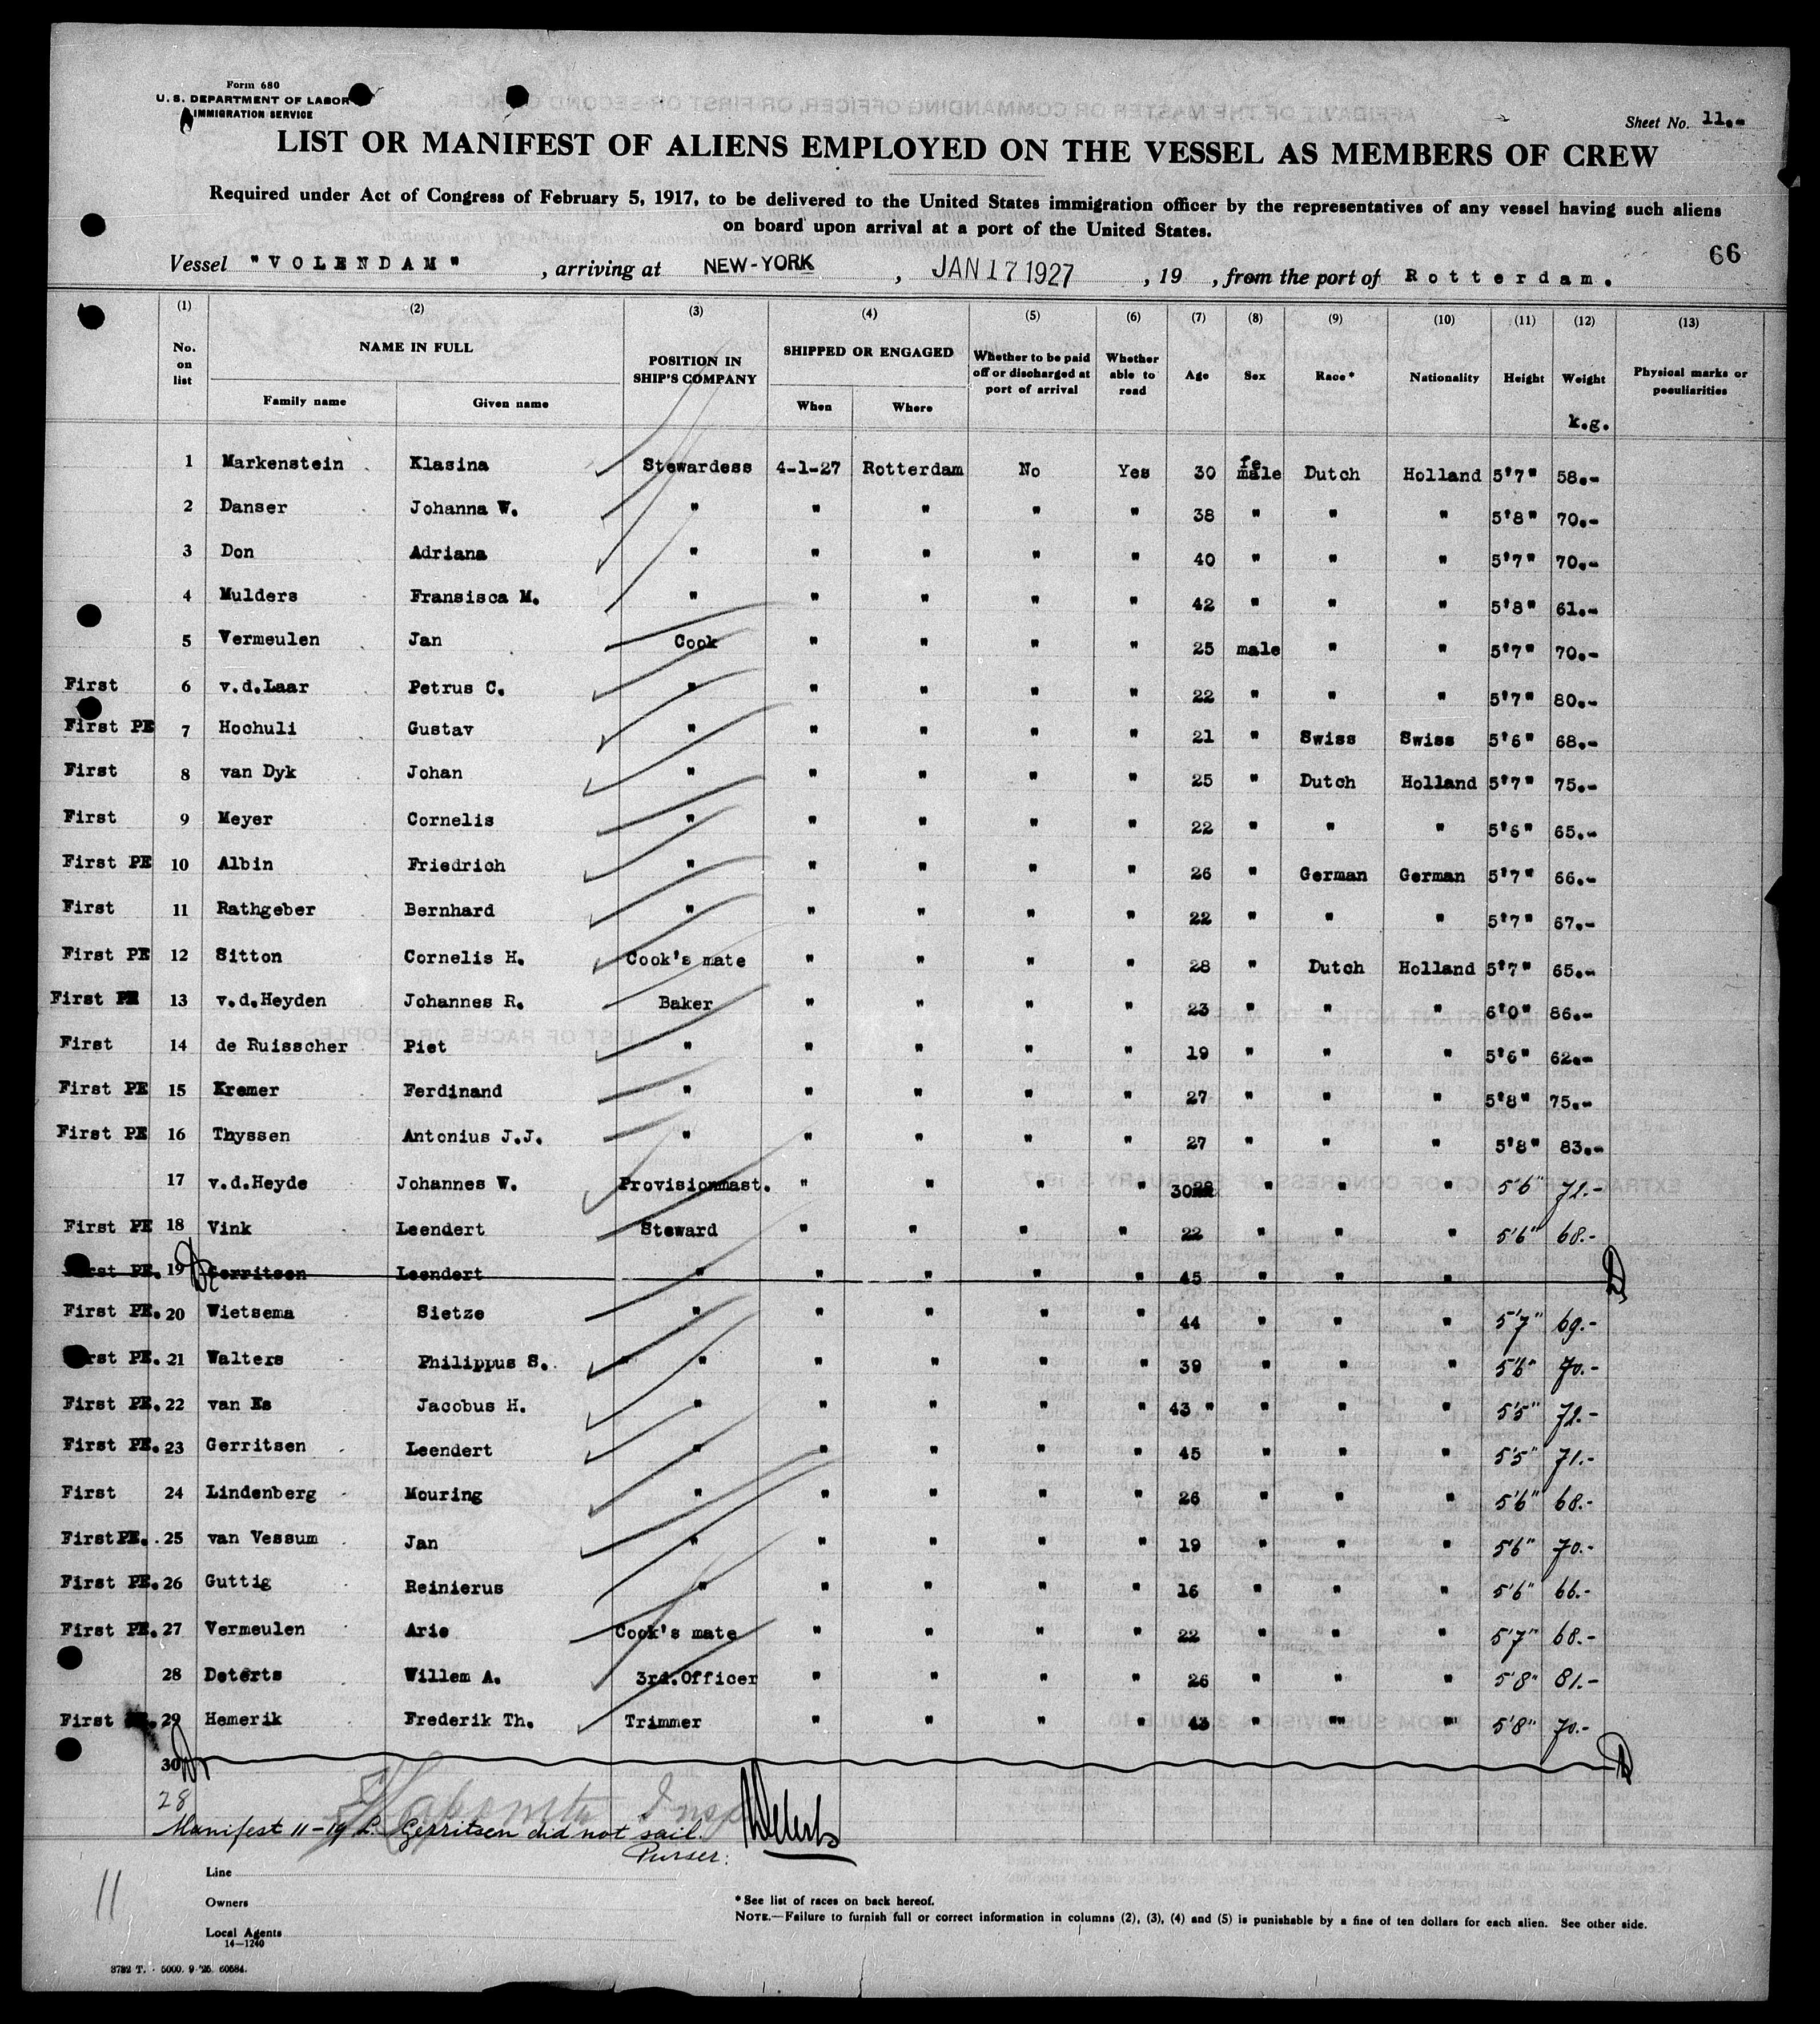 Form 680
U. S. DEPARTMENT OF LABOR
IMMIGRATION SERVICE
Sheet No. 11.-
LIST OR MANIFEST OF ALIENS EMPLOYED ON THE VESSEL AS MEMBERS OF CREW
Required under Act of Congress of February 5, 1917, to be delivered to the United States immigration officer by the representatives of any vessel having such aliens
on board upon arrival at a port of the United States.
66
Vessel "VOLENDAM" , arriving at NEW-YORK , JAN 17 1927 , 19 , from the port of Rotterdam.
(1) (2) (3) (4) (5) (6) (7) (8) (9) (10) (11) (12) (13)
No. on list NAME IN FULL POSITION IN SHIP'S COMPANY SHIPPED OR ENGAGED Whether to be paid off or discharged at port of arrival Whether able to read Age Sex Race* Nationality Height Weight Physical marks or peculiarities
Family name Given name When Where k.g.
1 Markenstein Klasina Stewardess 4-1-27 Rotterdam No Yes 30 female Dutch Holland 5'7" 58.-
2 Danser Johanna W. " " " " " 38 " " " 5'8" 70.-
3 Don Adriana " " " " " 40 " " " 5'7" 70.-
4 Mulders Fransisca M. " " " " " 42 " " " 5'8" 61.-
5 Vermeulen Jan Cook " " " " 25 male " " 5'7" 70.-
First 6 v.d.Laar Petrus C. " " " " " 22 " " " 5'7" 80.-
First PE 7 Hochuli Gustav " " " " " 21 " Swiss Swiss 5'6" 68.-
First 8 van Dyk Johan " " " " " 25 " Dutch Holland 5'7" 75.-
First 9 Meyer Cornelis " " " " " 22 " " " 5'6" 65.-
First PE 10 Albin Friedrich " " " " " 26 " German German 5'7" 66.-
First 11 Rathgeber Bernhard " " " " " 22 " " " 5'7" 67.-
First PE 12 Sitton Cornelis H. Cook's mate " " " " 28 " Dutch Holland 5'7" 65.-
First PE 13 v.d.Heyden Johannes R. Baker " " " " 23 " " " 6'0" 86.-
First 14 de Ruisscher Piet " " " " " 19 " " " 5'6" 62.-
First PE 15 Kremer Ferdinand " " " " " 27 " " " 5'8" 75.-
First PE 16 Thyssen Antonius J.J. " " " " " 27 " " " 5'8" 83.-
17 v.d.Heyde Johannes W. Provisionmast. " " " " 30 " " " 5'6" 72.-
First PE 18 Vink Leendert Steward " " " " 22 " " " 5'6" 68.-
First PE. 19 Gerritsen Leendert " " " " " 45 " " "
First PE. 20 Wietsema Sietze " " " " " 44 " " " 5'7" 69.-
First PE. 21 Walters Philippus S. " " " " " 39 " " " 5'6" 70.-
First PE. 22 van Es Jacobus H. " " " " " 43 " " " " 5'5" 72.-
First PE. 23 Gerritsen Leendert " " " " " 45 " " " 5'5" 71.-
First 24 Lindenberg Mouring " " " " " 26 " " " 5'6" 68.-
First PE. 25 van Vessum Jan " " " " " 19 " " " 5'6" 70.-
First PE. 26 Guttig Reinierus " " " " " 16 " " " 5'6" 66.-
First PE. 27 Vermeulen Arie Cook's mate " " " " 22 " " " 5'7" 68.-
28 Deterts Willem A. 3rd.Officer " " " " 26 " " " 5'8" 81.-
First 29 Hemerik Frederik Th. Trimmer " " " " 43 " "" " 5'8" 70.-
30
28
Manifest 11-19 L. Gerritsen did not sail.
Purser.
11
Line
Owners
Local Agents
14-1240
*See list of races on back hereof.
NOTE.—Failure to furnish full or correct information in columns (2), (3), (4) and (5) is punishable by a fine of ten dollars for each alien. See other side.
3782 T. - 5000. 9 '25. 60584.